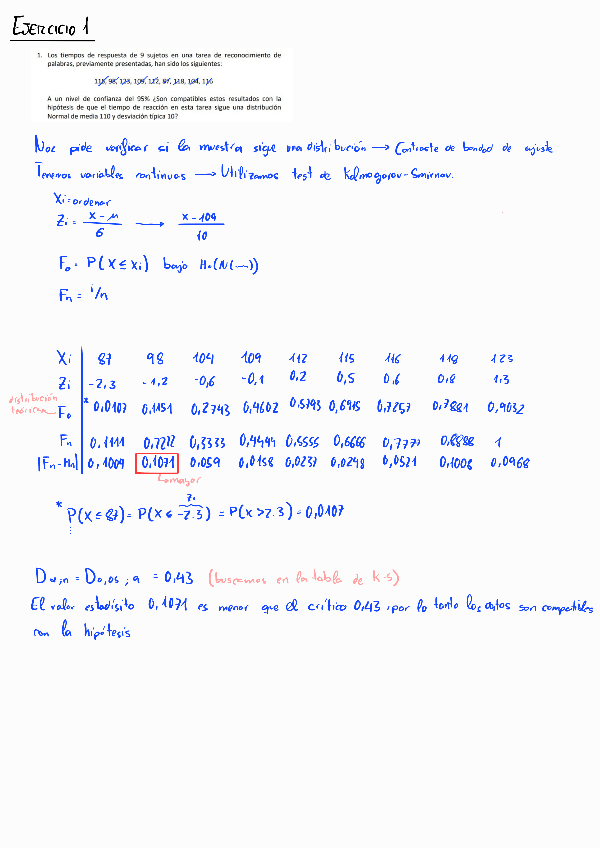 EJERCICIO 1
1. Los tiempos de respuesta de 9 sujetos en una tarea de reconocimiento de
palabras, previamente presentadas, han sido los siguientes:
115, 98, 123, 109, 112, 87, 118, 104, 116
A un nivel de confianza del 95% ¿Son compatibles estos resultados con la
hipótesis de que el tiempo de reacción en esta tarea sigue una distribución
Normal de media 110 y desviación típica 10?
Nos pide verificar si la muestra sigue una distribución → Contraste de bondad de ajuste
Tenemos variables continuas → Utilizamos test de Kolmogorov-Smirnov.
Xi = ordenar
Zi = (x - μ) / σ → (x - 109) / 10
Fo = P(X ≤ xi) bajo Ho (N(---))
Fn = i/n
Xi 87 98 104 109 112 115 116 118 123
Zi -2,3 -1,2 -0,6 -0,1 0,2 0,5 0,6 0,8 1,3
distribución teórica Fo * 0,0107 0,1151 0,2743 0,4602 0,5793 0,6915 0,7257 0,7881 0,9032
Fn 0,1111 0,2222 0,3333 0,4444 0,5555 0,6666 0,7777 0,8888 1
|Fn-Hn| 0,1004 0,1071 0,059 0,0158 0,0237 0,0248 0,0521 0,1008 0,0968
↳ mayor
* P(X ≤ 87) = P(X ≤ -2.3) = P(X > 2.3) = 0,0107
Zi
Dα,n = D0,05;9 = 0,43 (buscamos en la tabla de K-S)
El valor estadísito 0,1071 es menor que el crítico 0,43, por lo tanto los datos son compatibles
con la hipótesis